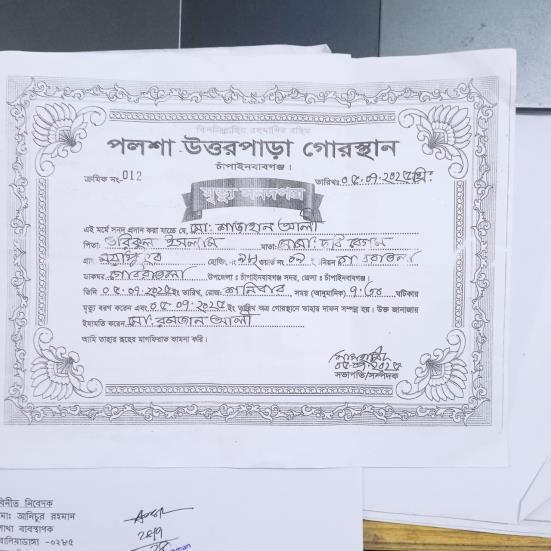 বিসমিল্লাহির রহমানির রহিম
পলশা উত্তরপাড়া গোরস্থান
চাঁপাইনবাবগঞ্জ।
ক্রমিক নং- 012 তারিখঃ ০৫.০৭.২০২৫খ্রিঃ
মৃত্যু সনদপত্র
এই মর্মে সনদ প্রদান করা যাচ্ছে যে, মো: শাজাহান আলী
পিতা: তরিকুল ইসলাম মাতা: মোসা:
গ্রাম: হোল্ডিং নং ৯৮ ওয়ার্ড নং ০২ ইউনিয়ন
ডাকঘর উপজেলা : চাঁপাইনবাবগঞ্জ সদর, জেলা : চাঁপাইনবাবগঞ্জ।
তিনি ০৫.০৭.২০২৫ ইং তারিখ, রোজ: শনিবার, সময় (আনুমানিক) ঘটিকায়
মৃত্যু বরণ করেন এবং ০৫.০৭.২০২৫ ইং তারিখ অত্র গোরস্থানে তাহার দাফন সম্পন্ন হয়। উক্ত জানাজায়
ইমামতি করেন মো: রমজান আলী
আমি তাহার রূহের মাগফিরাত কামনা করি।
সভাপতি/সম্পাদক
বিনীত নিবেদক
মোঃ আনিচুর রহমান
শাখা ব্যবস্থাপক
-০২৮৫